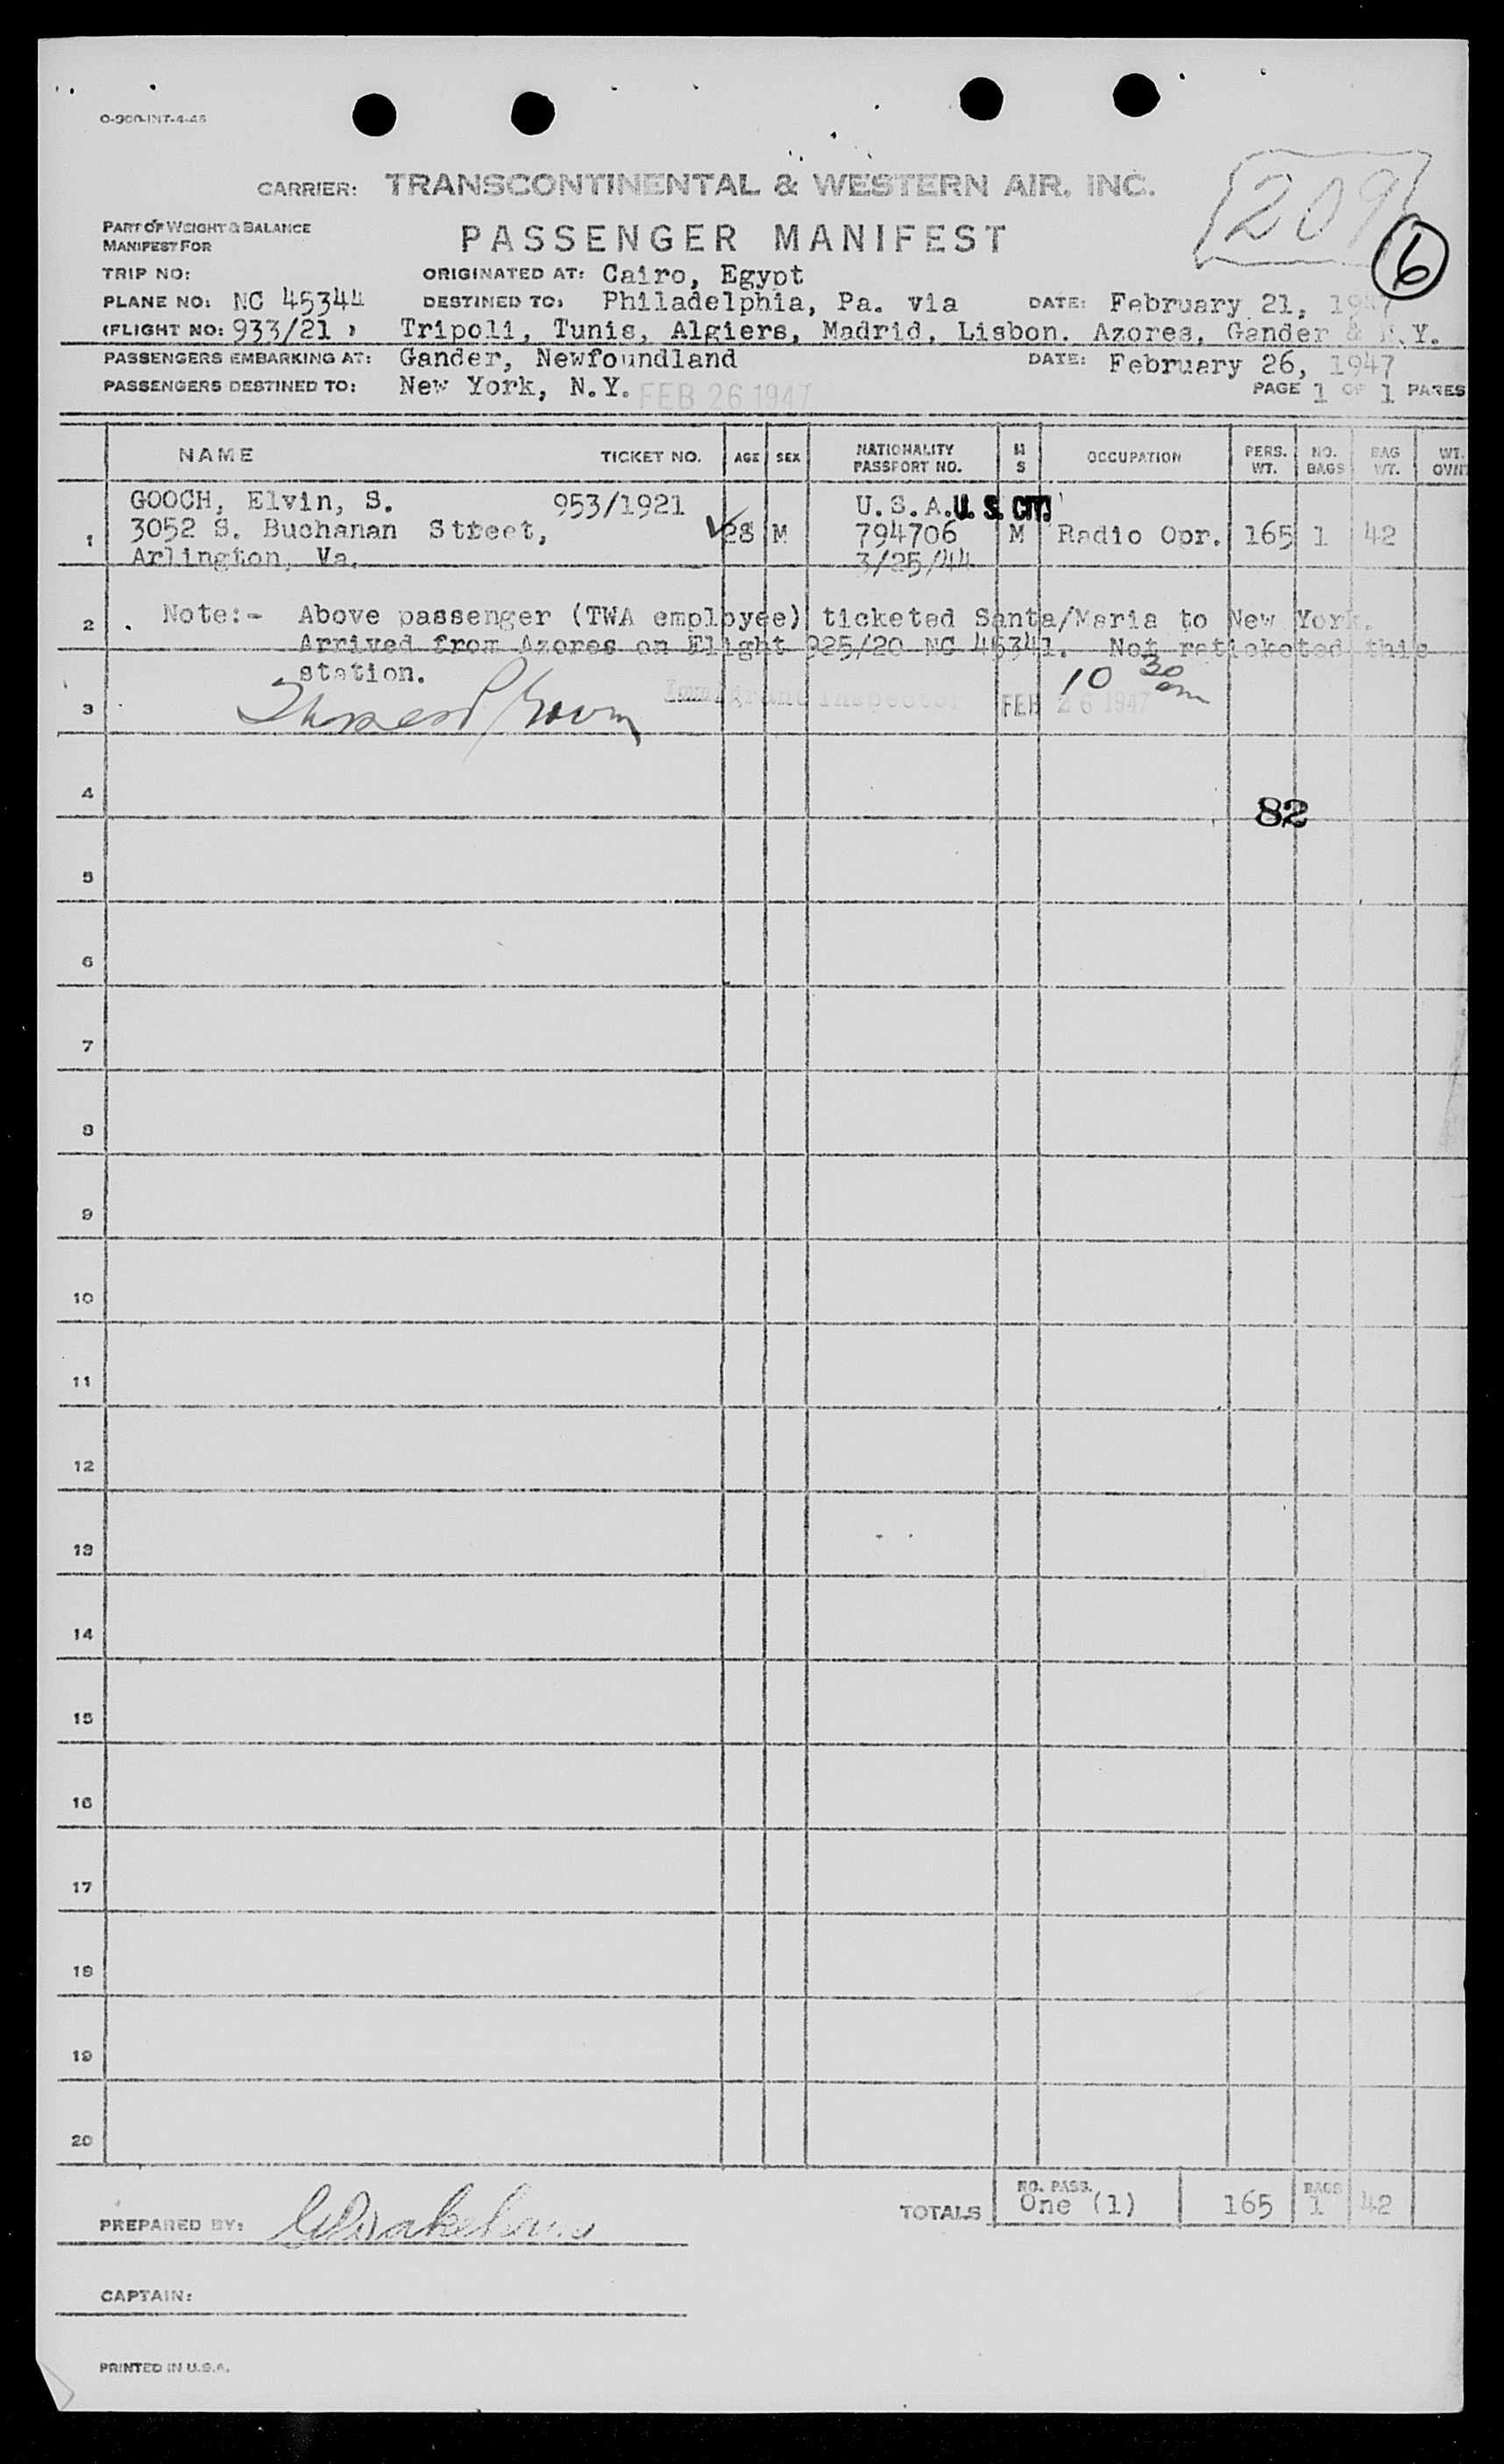 O-900-INT-4-46
CARRIER: TRANSCONTINENTAL & WESTERN AIR, INC.
209
6
PART OF WEIGHT & BALANCE
MANIFEST FOR
PASSENGER MANIFEST
TRIP NO: ORIGINATED AT: Cairo, Egypt
PLANE NO: NC 45344 DESTINED TO: Philadelphia, Pa. via DATE: February 21, 1947
(FLIGHT NO: 933/21 ) Tripoli, Tunis, Algiers, Madrid, Lisbon, Azores, Gander & N.Y.
PASSENGERS EMBARKING AT: Gander, Newfoundland DATE: February 26, 1947
PASSENGERS DESTINED TO: New York, N.Y. FEB 26 1947 PAGE 1 OF 1 PAGES
NAME TICKET NO. AGE SEX NATIONALITY PASSPORT NO. M S OCCUPATION PERS. WT. NO. BAGS BAG WT. WT. OVWT
GOOCH, Elvin, S. 953/1921 U.S.A. U. S. CIT.
1 3052 S. Buchanan Street, 28 M 794706 M Radio Opr. 165 1 42
Arlington, Va. 3/25/44
2 Note:- Above passenger (TWA employee) ticketed Santa/Maria to New York.
Arrived from Azores on Flight 925/20 NC 45341. Not reticketed this
station.
Immigrant Inspector FEB 26 1947 10 30 am
3
4
82
5
6
7
8
9
10
11
12
13
14
15
16
17
18
19
20
PREPARED BY: TOTALS NO. PASS. One (1) 165 BAGS 1 42
CAPTAIN:
PRINTED IN U.S.A.